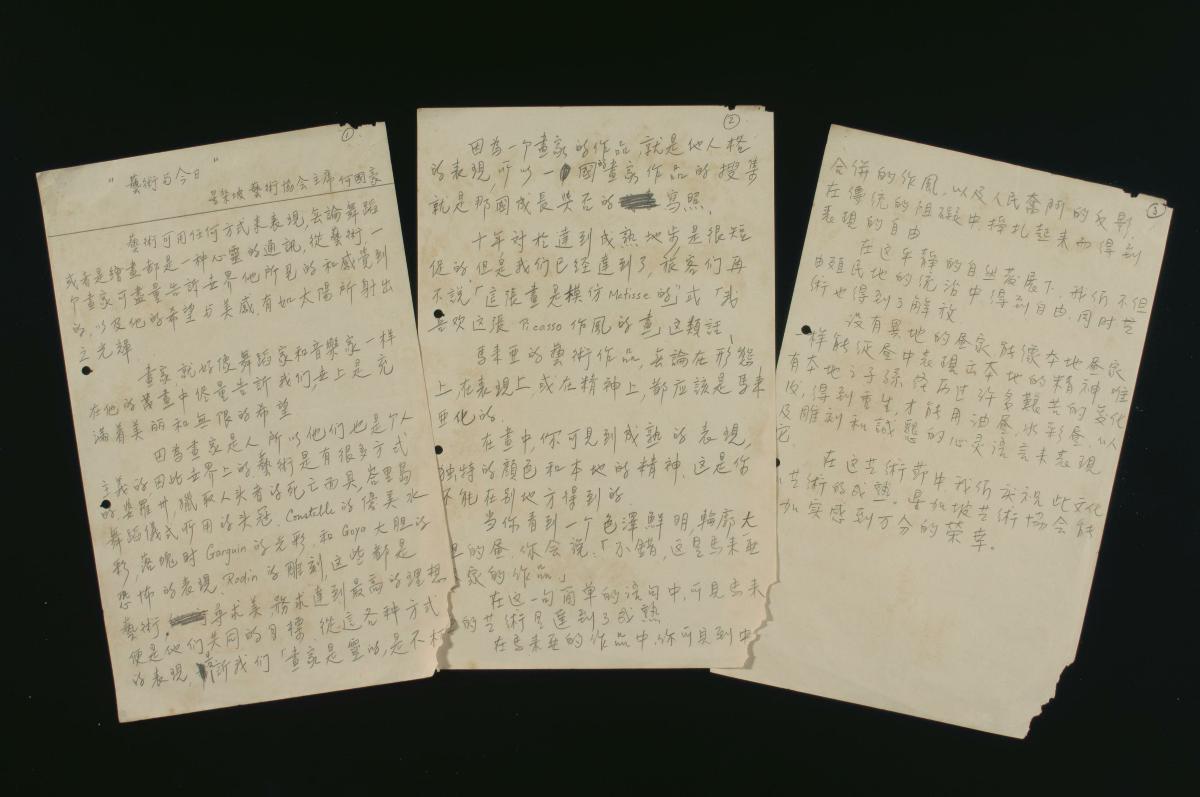 ①
"藝術與今日"
星架坡藝術協會主席何國豪
藝術可用任何方式來表現,無論舞蹈
或者是繪畫都是一种心靈的通訊,從藝術一
个畫家可盡量告訴世界他所見的和感覺到
的,以及他的希望与美感,有如太陽所射出
之光輝.
畫家,就好像舞蹈家和音樂家一样
在他的畫中尽量告訴我們,世上是充
滿着美丽和無限的希望
因爲畫家是人所以他們也是个人
主義的因此世界上的藝術是有很多方式
的婆羅州,獵取人头者的死亡面具,峇里島
舞蹈儀式所用的头冠.Constable的優美水
彩,落魄时Gauguin的光彩,和Goya大胆的
恐怖的表現.Rodin的雕刻,這些都是
藝術.尋求美務求達到最高的理想
便是他们共同的目標,從這各种方式
的表現,告訴我们「畫家是靈的,是不朽
②
因為一个畫家的作品,就是他人格
的表現,所以一國的畫家作品的搜集
就是那國成長與否的寫照.
十年对於達到成熟地步是很短
促的但是我们已經達到了,旅客们再
不說「這張畫是模仿Matisse的」或「我
喜欢這張Picasso作風的畫」這類話
馬來亜的藝術作品,無論在形態
上,在表現上,或在精神上,都应該是馬來
亜化的.
在畫中你可見到成熟的表現,
独特的顏色和本地的精神.这是你
不能在别地方得到的
当你看到一个色澤鮮明,輪廓大
的昼,你会說.「不錯,这是馬來亜
家的作品」
在这一句简单的语句中,可見馬来
的艺術是達到了成熟
在馬來亜的作品中,你可見到中
③
合併的作風,以及人民奮鬥的反影,
在傳统的阻礙中掙扎起来而得到
表現的自由
在这平静的自然發展下,我们不但
由殖民地的统治中得到自由,同时艺
術也得到了解放
没有異地的昼家能像本地昼家
一样能從昼中表現出本地的精神唯
有本地之子孫,经过许多艱苦的变化
後,得到重生,才能用油昼,水彩昼,以
及雕刻和誠懇的心灵語言来表現
它.
在这艺術節中,我们庆祝此文化
艺術的成熟.星加坡艺術協会能
加实感到万分的荣幸。